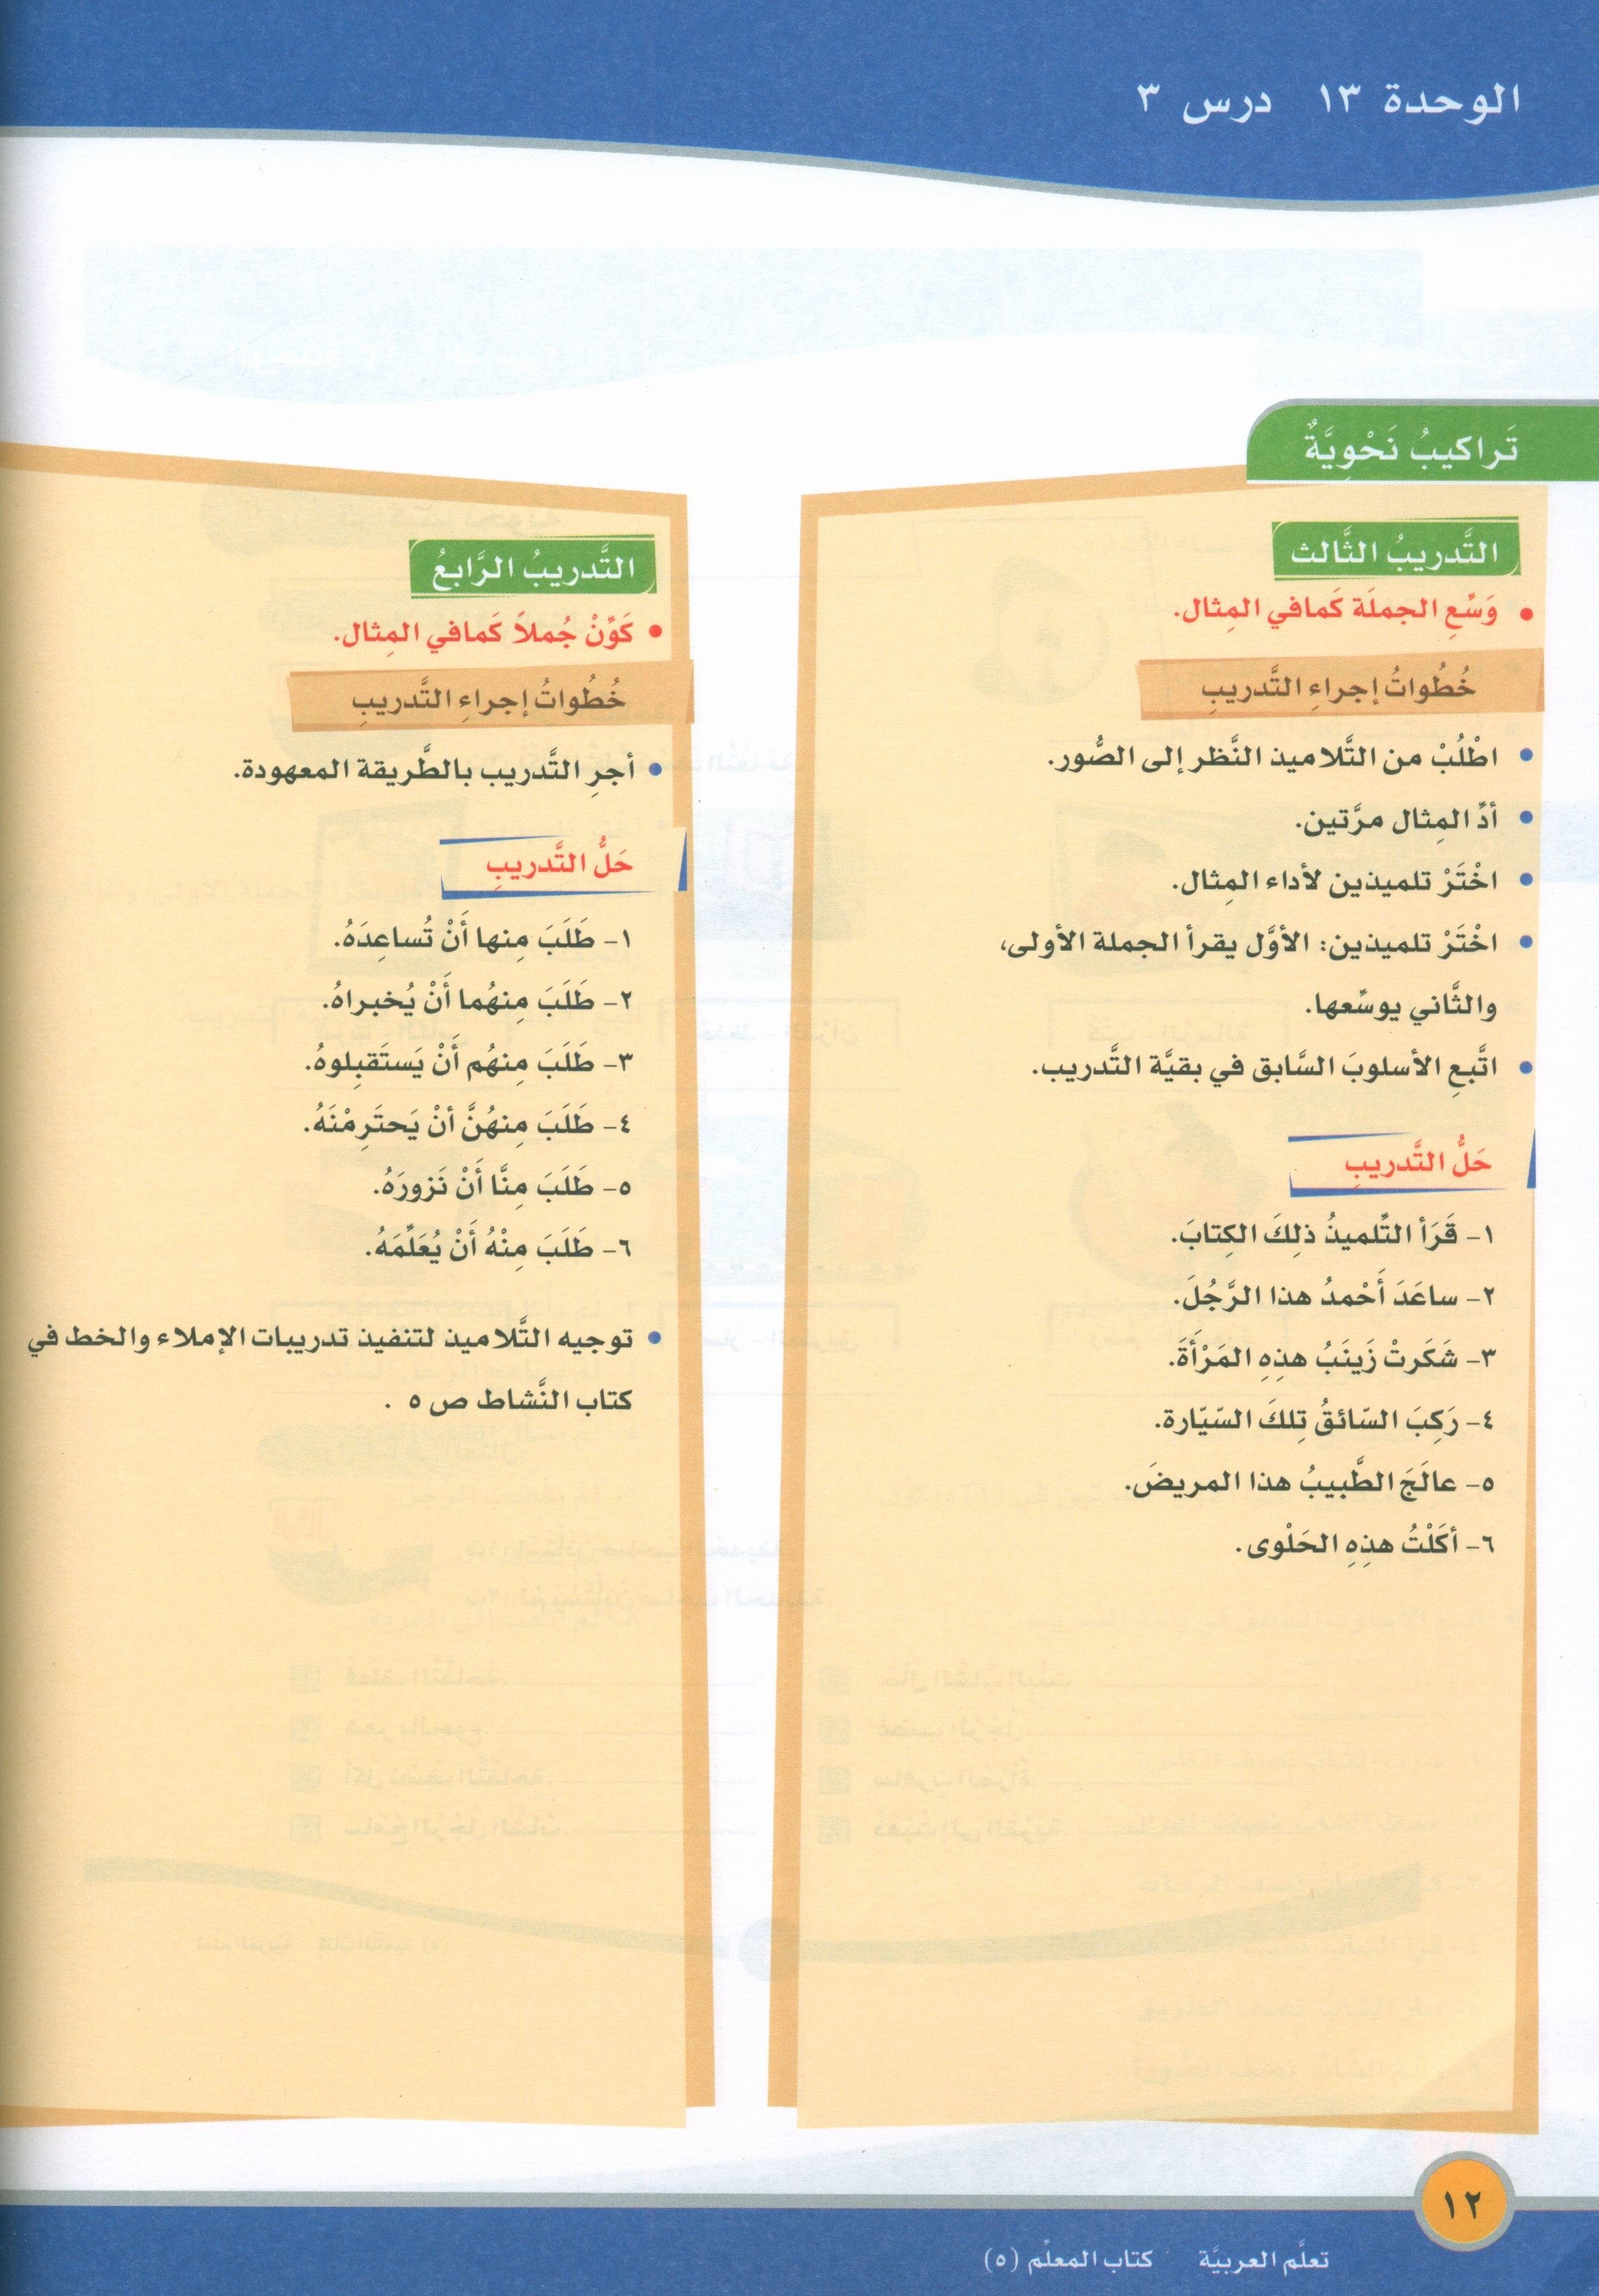 الوحدة ١٣ درس ٣
تَراكيبُ نَحْوِيَّةٌ
التَّدريبُ الثَّالث
• وَسِّعِ الجملَة كَمافي المِثال.
خُطُواتُ إجراءِ التَّدريبِ
• اطْلُبْ من التَّلاميذ النَّظر إلى الصُّور.
• أدِّ المِثال مرَّتين.
• اخْتَرْ تلميذين لأداء المِثال.
• اخْتَرْ تلميذين: الأوَّل يقرأ الجملة الأولى،
والثَّاني يوسِّعها.
• اتَّبعِ الأسلوبَ السَّابق في بقيَّة التَّدريب.
حَلُّ التَّدريبِ
١- قَرَأ التِّلميذُ ذلِكَ الكِتابَ.
٢- ساعَدَ أَحْمدُ هذا الرَّجُلَ.
٣- شَكَرتْ زَينَبُ هذِهِ المَرْأَةَ.
٤- رَكِبَ السّائقُ تِلكَ السّيّارة.
٥- عالَجَ الطَّبيبُ هذا المريضَ.
٦- أكَلْتُ هذِهِ الحَلْوى.
التَّدريبُ الرَّابعُ
• كَوِّنْ جُملاً كَمافي المِثال.
خُطُواتُ إجراءِ التَّدريبِ
• أجرِ التَّدريب بالطَّريقة المعهودة.
حَلُّ التَّدريبِ
١- طَلَبَ مِنها أَنْ تُساعِدَهُ.
٢- طَلَبَ مِنهُما أَنْ يُخبراهُ.
٣- طَلَبَ مِنهُم أَنْ يَستَقبِلوهُ.
٤- طَلَبَ مِنهُنَّ أنْ يَحتَرِمْنَهُ.
٥- طَلَبَ مِنَّا أَنْ نَزورَهُ.
٦- طَلَبَ مِنْهُ أَنْ يُعَلِّمَهُ.
• توجيه التَّلاميذ لتنفيذ تدريبات الإملاء والخط في
كتاب النَّشاط ص ٥ .
١٢
تعلَّم العربيَّة كتاب المعلِّم (٥)